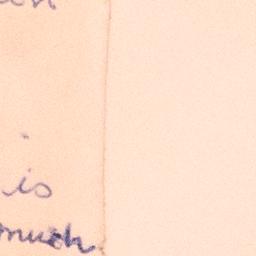 is
much